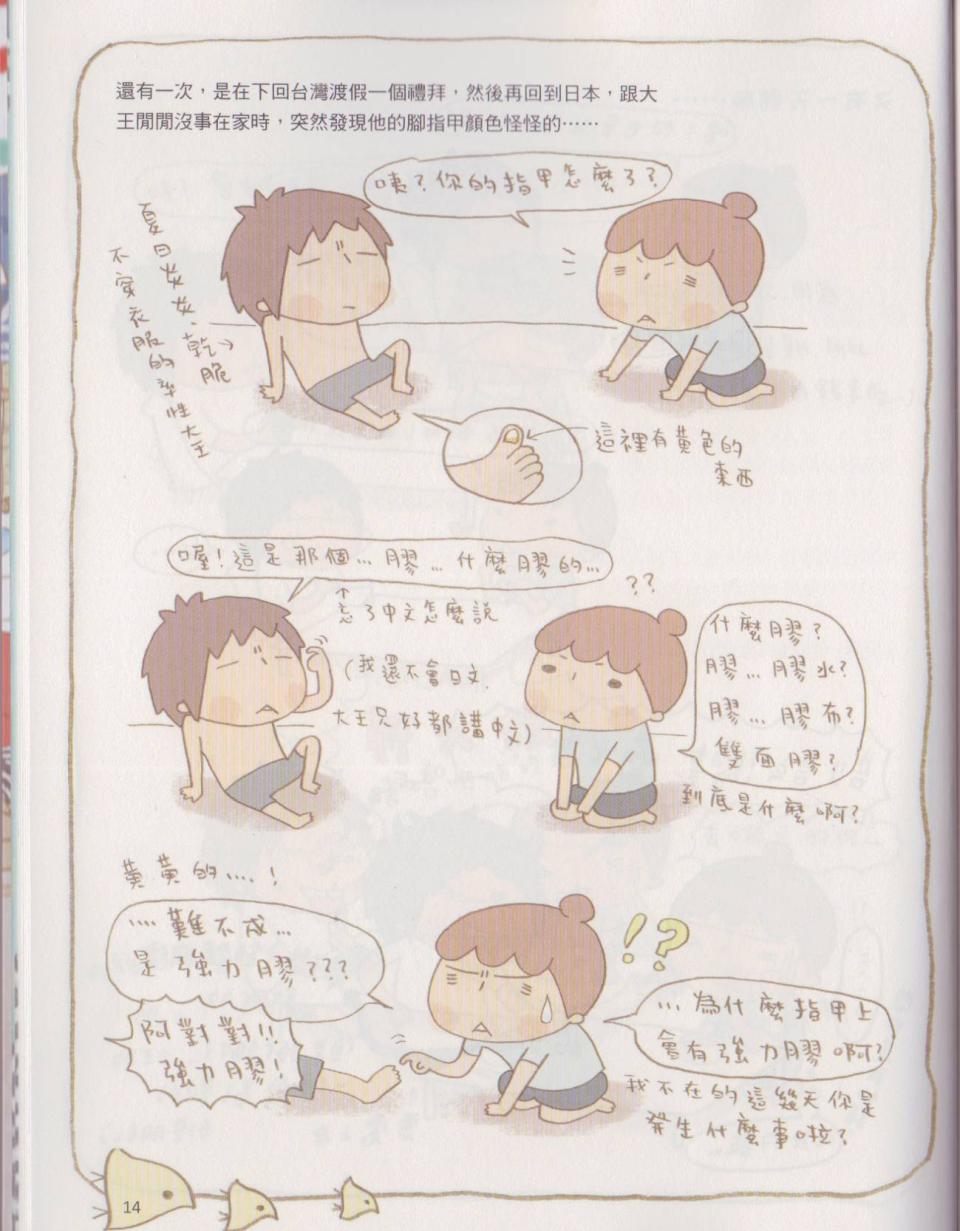 還有一次，是在下回台灣渡假一個禮拜，然後再回到日本，跟大
王閒閒沒事在家時，突然發現他的腳指甲顏色怪怪的……
咦？你的指甲怎麼了？
夏日炎炎、乾脆
不穿衣服的率性大王
這裡有黃色的
東西
喔！這是那個…膠…什麼膠的…
忘了中文怎麼說
(我還不會日文.
大王只好都講中文)
??
什麼膠？
膠…膠水？
膠…膠布？
雙面膠？
到底是什麼啊？
黃黃的….！
….難不成…
是強力膠???
阿對對!!
強力膠!
!?
…為什麼指甲上
會有強力膠啊？
我不在的這幾天你是
發生什麼事啦？
14